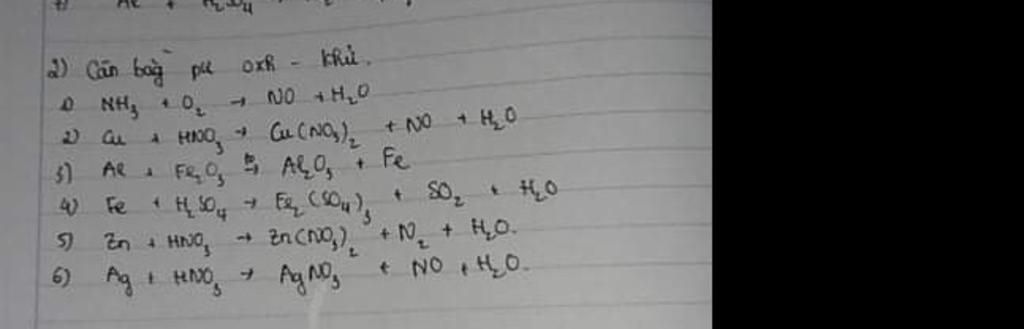 7) Al + H₂SO₄
2) Cân bằg pư oxh - khử.
1) NH₃ + O₂ → NO + H₂O
2) Cu + HNO₃ → Cu(NO₃)₂ + NO + H₂O
3) Al + Fe₂O₃ t° → Al₂O₃ + Fe
4) Fe + H₂SO₄ → Fe₂(SO₄)₃ + SO₂ + H₂O
5) Zn + HNO₃ → Zn(NO₃)₂ + N₂ + H₂O.
6) Ag + HNO₃ → AgNO₃ + NO + H₂O.